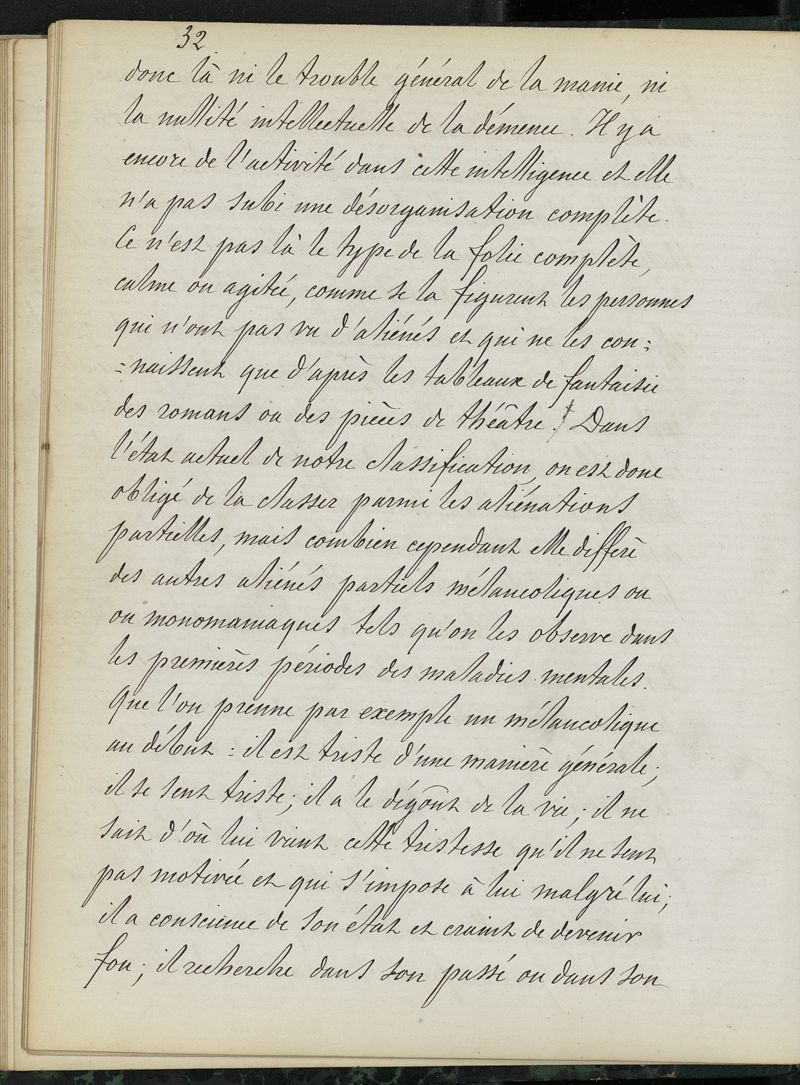 32
donc là ni le trouble général de la manie, ni
la nullité intellectuelle de la démence. Il y a
encore de l'activité dans cette intelligence et elle
n'a pas subi une désorganisation complète.
Ce n'est pas là le type de la folie complète,
calme ou agitée, comme se la figurent les personnes
qui n'ont pas vu d'aliénés et qui ne les con=
=naissent que d'après les tableaux de fantaisie
des romans ou des pièces de théâtre. Dans
l'état actuel de notre classification, on est donc
obligé de la classer parmi les aliénations
partielles, mais combien cependant elle diffère
des autres aliénés partiels mélancoliques ou
ou monomaniaques tels qu'on les observe dans
les premières périodes des maladies mentales.
Que l'on prenne par exemple un mélancolique
au début : il est triste d'une manière générale;
il se sent triste; il a le dégoût de la vie; il ne
sait d'où lui vient cette tristesse qu'il ne sent
pas motivée et qui s'impose à lui malgré lui;
il a conscience de son état et craint de devenir
fou; il recherche dans son passé ou dans son